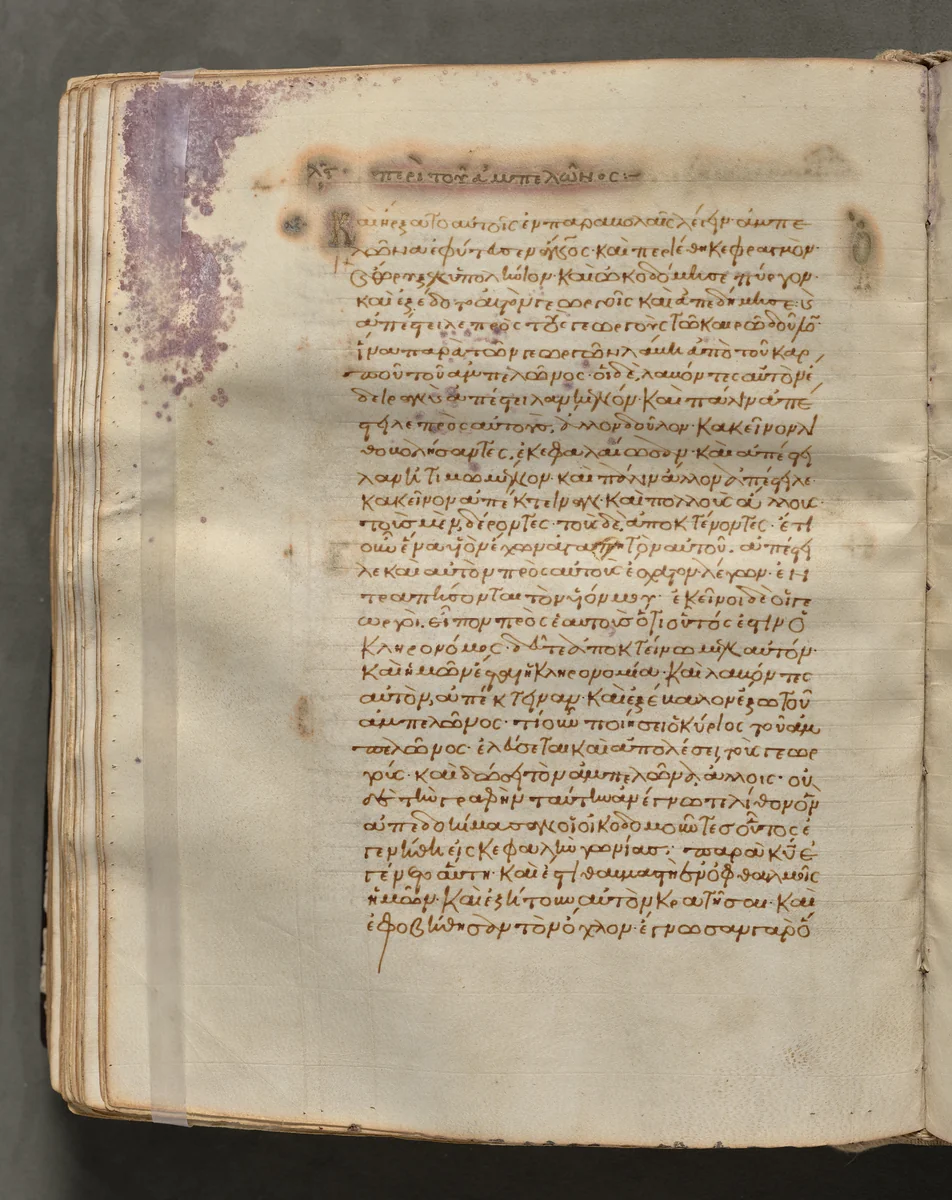 λϛ· περὶ τοῦ ἀμπελῶνος:–
Καὶ ἤρξατο αὐτοῖς ἐν παραβολαῖς λέγειν· ἀμπε
λῶνα ἐφύτευσεν ἄνος· καὶ περιέθηκε φραγμὸν·
καὶ ὤρυξεν ὑπολήνιον· καὶ ὠκοδόμησε πύργον·
καὶ ἐξέδοτο αὐτὸν γεωργοῖς καὶ ἀπεδήμησε· καὶ
ἀπέστειλε πρὸς τοὺς γεωργοὺς τῶ καιρῶ δοῦλον·
ἵνα παρὰ τῶν γεωργῶν λάβη ἀπὸ τοῦ καρ
ποῦ τοῦ ἀμπελῶνος· οἱ δὲ, λαβόντες αὐτὸν ἔ
δειραν καὶ ἀπέστειλαν κενόν· καὶ πάλιν ἀπέ
στειλε πρὸς αὐτοὺς, ἄλλον δοῦλον· κακεῖνον λι
θοβολήσαντες, ἐκεφαλαίωσαν· καὶ ἀπέστει
λαν ἠτιμωμένον· καὶ πάλιν ἄλλον ἀπέστειλε·
κακεῖνον ἀπέκτειναν· καὶ πολλοὺς ἄλλους·
τοὺς μὲν, δέροντες· τοὺς δὲ, ἀποκτένοντες· ἔτι
οὖν ἕνα υἱὸν ἔχων ἀγαπητὸν αὐτοῦ. ἀπέστει
λε καὶ αὐτὸν πρὸς αὐτοὺς ἔσχατον· λέγων· ἐν
τραπήσονται τὸν υἱόν μου· ἐκεῖνοι δὲ οἱ γε
ωργοὶ. εἶπον πρὸς ἑαυτοὺς ὅτι οὗτός ἐστιν ὁ
κληρονόμος· δεῦτε ἀποκτείνωμεν αὐτόν·
καὶ ἡμῶν ἔσται ἡ κληρονομία· καὶ λαβόντες
αὐτὸν, ἀπέκτειναν· καὶ ἐξέβαλον ἔξω τοῦ
ἀμπελῶνος· τί οὖν ποιήσει ὁ κύριος τοῦ ἀμ
πελῶνος· ἐλεύσεται καὶ ἀπολέσει, τοὺς γεωρ
γούς· καὶ δώσει τὸν ἀμπελῶνα, ἄλλοις· οὐ
δὲ τὴν γραφὴν ταύτην ἀνέγνωτε λίθον ὃν
ἀπεδοκίμασαν οἱ οἰκοδομοῦντες οὗτος ἐ
γενήθη εἰς κεφαλὴν γωνίας· παρὰ κυ ἐ
γένετο αὕτη· καὶ ἔστι θαυμαστὴ ἐν ὀφθαλμοῖς
ἡμῶν· καὶ ἐζήτουν αὐτὸν κρατῆσαι· καὶ
ἐφοβήθησαν τὸν ὄχλον· ἔγνωσαν γὰρ ὅ